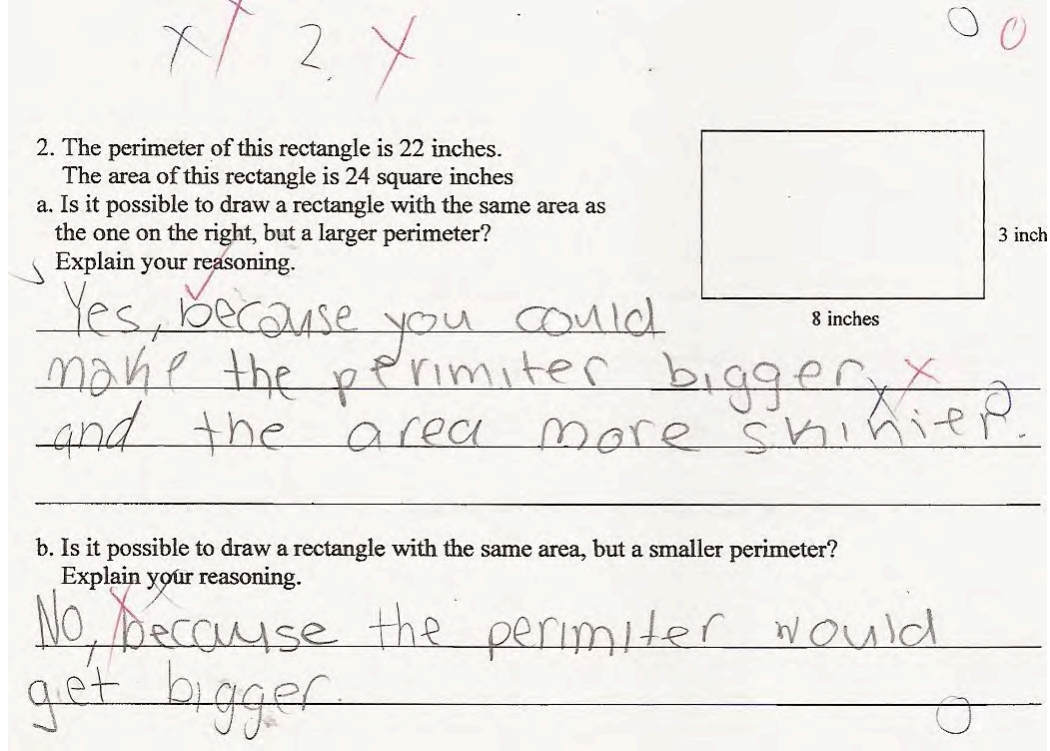 x x 2. x
0 0
2. The perimeter of this rectangle is 22 inches.
The area of this rectangle is 24 square inches
a. Is it possible to draw a rectangle with the same area as
the one on the right, but a larger perimeter?
Explain your reasoning.
3 inch
8 inches
Yes, because you could
make the perimiter bigger x
and the area more skinier.
b. Is it possible to draw a rectangle with the same area, but a smaller perimeter?
Explain your reasoning.
No, because the perimiter would
get bigger.
0